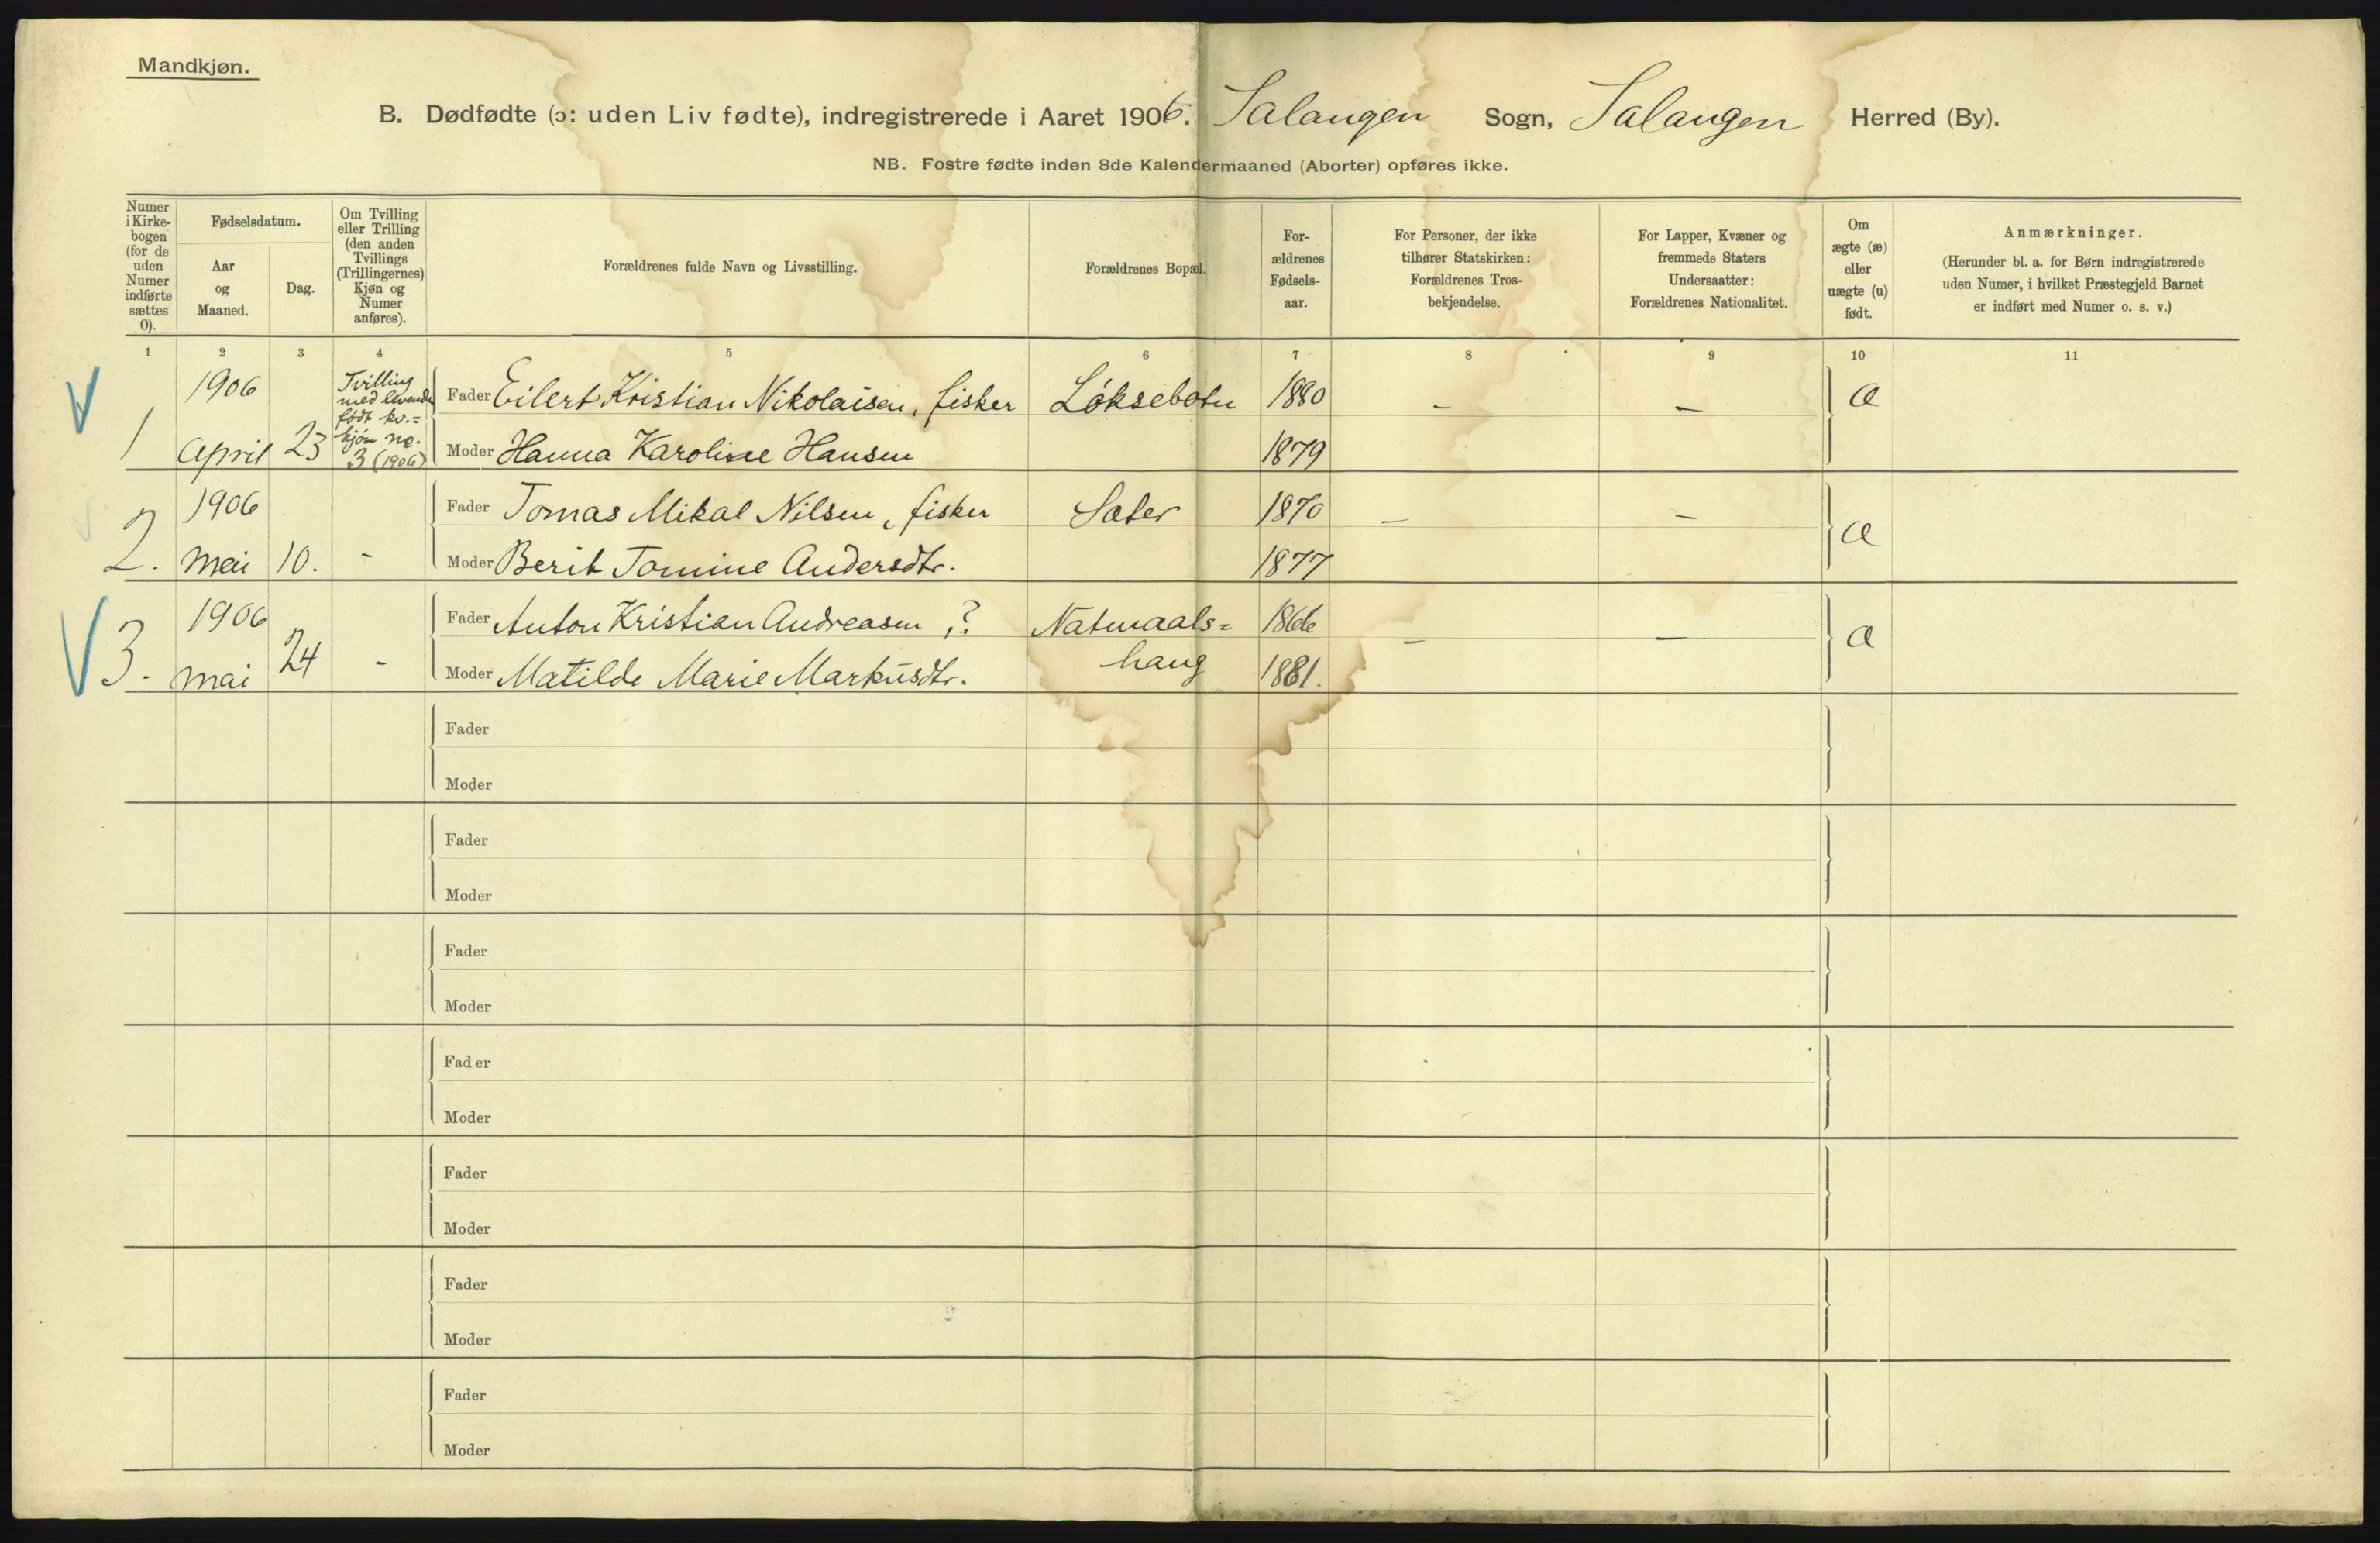 Mandkjøn.
B. Dødfødte (ɔ: uden Liv fødte), indregistrerede i Aaret 1906. Salangen Sogn, Salangen Herred (By).
NB. Fostre fødte inden 8de Kalendermaaned (Aborter) opføres ikke.
Numer
i Kirke-
bogen
(for de
uden
Numer
indførte
sættes
0).
Fødselsdatum.
Aar
og
Maaned.
Dag.
Om Tvilling
eller Trilling
(den anden
Tvillings
(Trillingernes)
Kjøn og
Numer
anføres).
Forældrenes fulde Navn og Livsstilling.
Forældrenes Bopæl.
For-
ældrenes
Fødsels-
aar.
For Personer, der ikke
tilhører Statskirken:
Forældrenes Tros-
bekjendelse.
For Lapper, Kvæner og
fremmede Staters
Undersaatter:
Forældrenes Nationalitet.
Om
ægte (æ)
eller
uægte (u)
født.
Anmærkninger.
(Herunder bl. a. for Børn indregistrerede
uden Numer, i hvilket Præstegjeld Barnet
er indført med Numer o. s. v.)
1 2 3 4 5 6 7 8 9 10 11
1906
Tvilling
med levende
født kv.=
kjøn no.
3 (1906)
Fader Eilert Kristian Nikolaisen, fisker Løksebotn 1880 – – æ
1 April 23 Moder Hanna Karoline Hansen 1879
1906 Fader Tomas Mikal Nilsen, fisker Sæter 1870 – – æ
2. Mai 10. - Moder Berit Tomine Andersdtr. 1877
1906 Fader Anton Kristian Andreasen, ? Natmaals= 1866 – – æ
3. Mai 24 - Moder Matilde Marie Markusdtr. haug 1881.
Fader
Moder
Fader
Moder
Fader
Moder
Fader
Moder
Fader
Moder
Fader
Moder
Fader
Moder